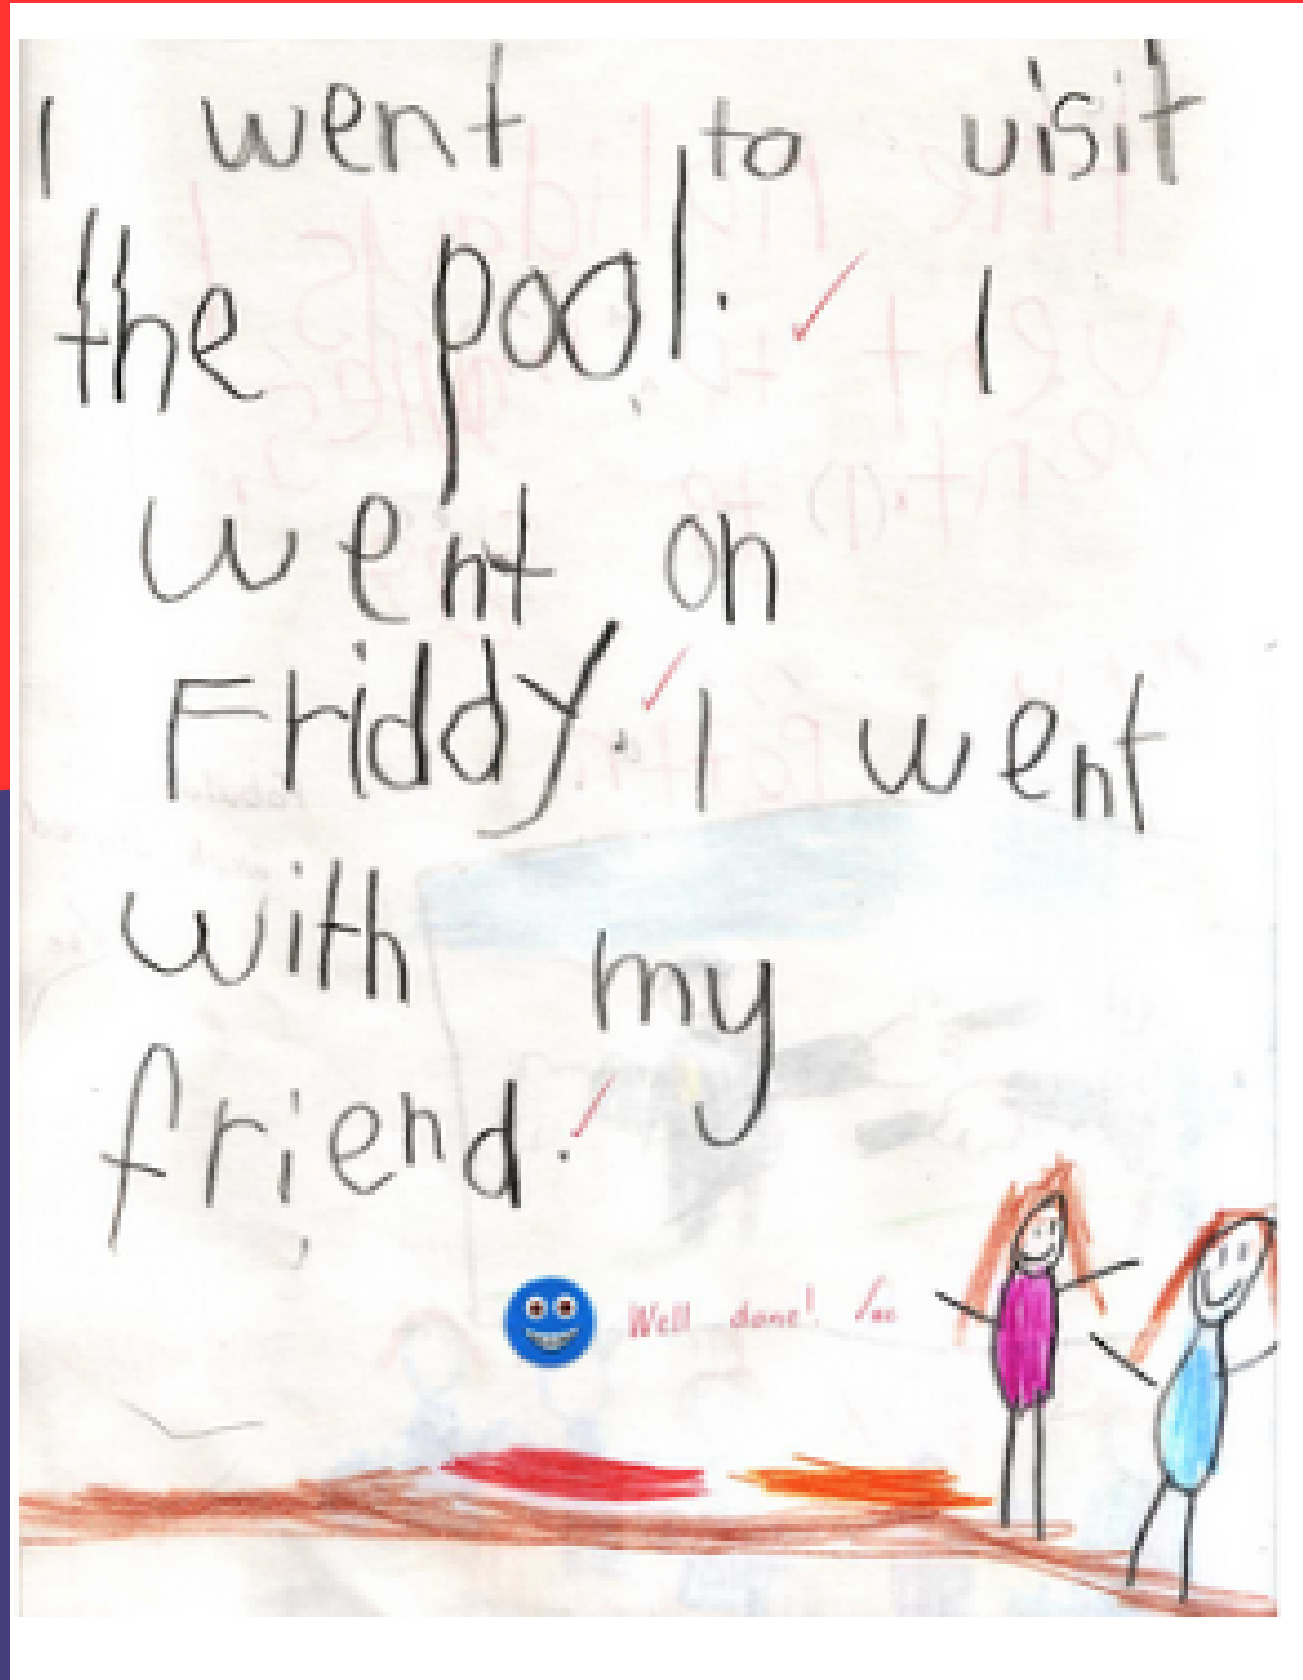 I went to visit
the pool. I
went on
Fridдy. I went
with my
friend.
Well done!